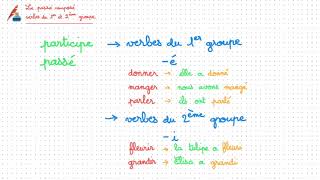 Le passé composé
verbes du 1er et 2ème groupe
participe passé → verbes du 1er groupe
-é
donner → elle a donné
manger → nous avons mangé
parler → ils ont parlé
→ verbes du 2ème groupe
-i
fleurir → la tulipe a fleuri
grandir → Elisa a grandi